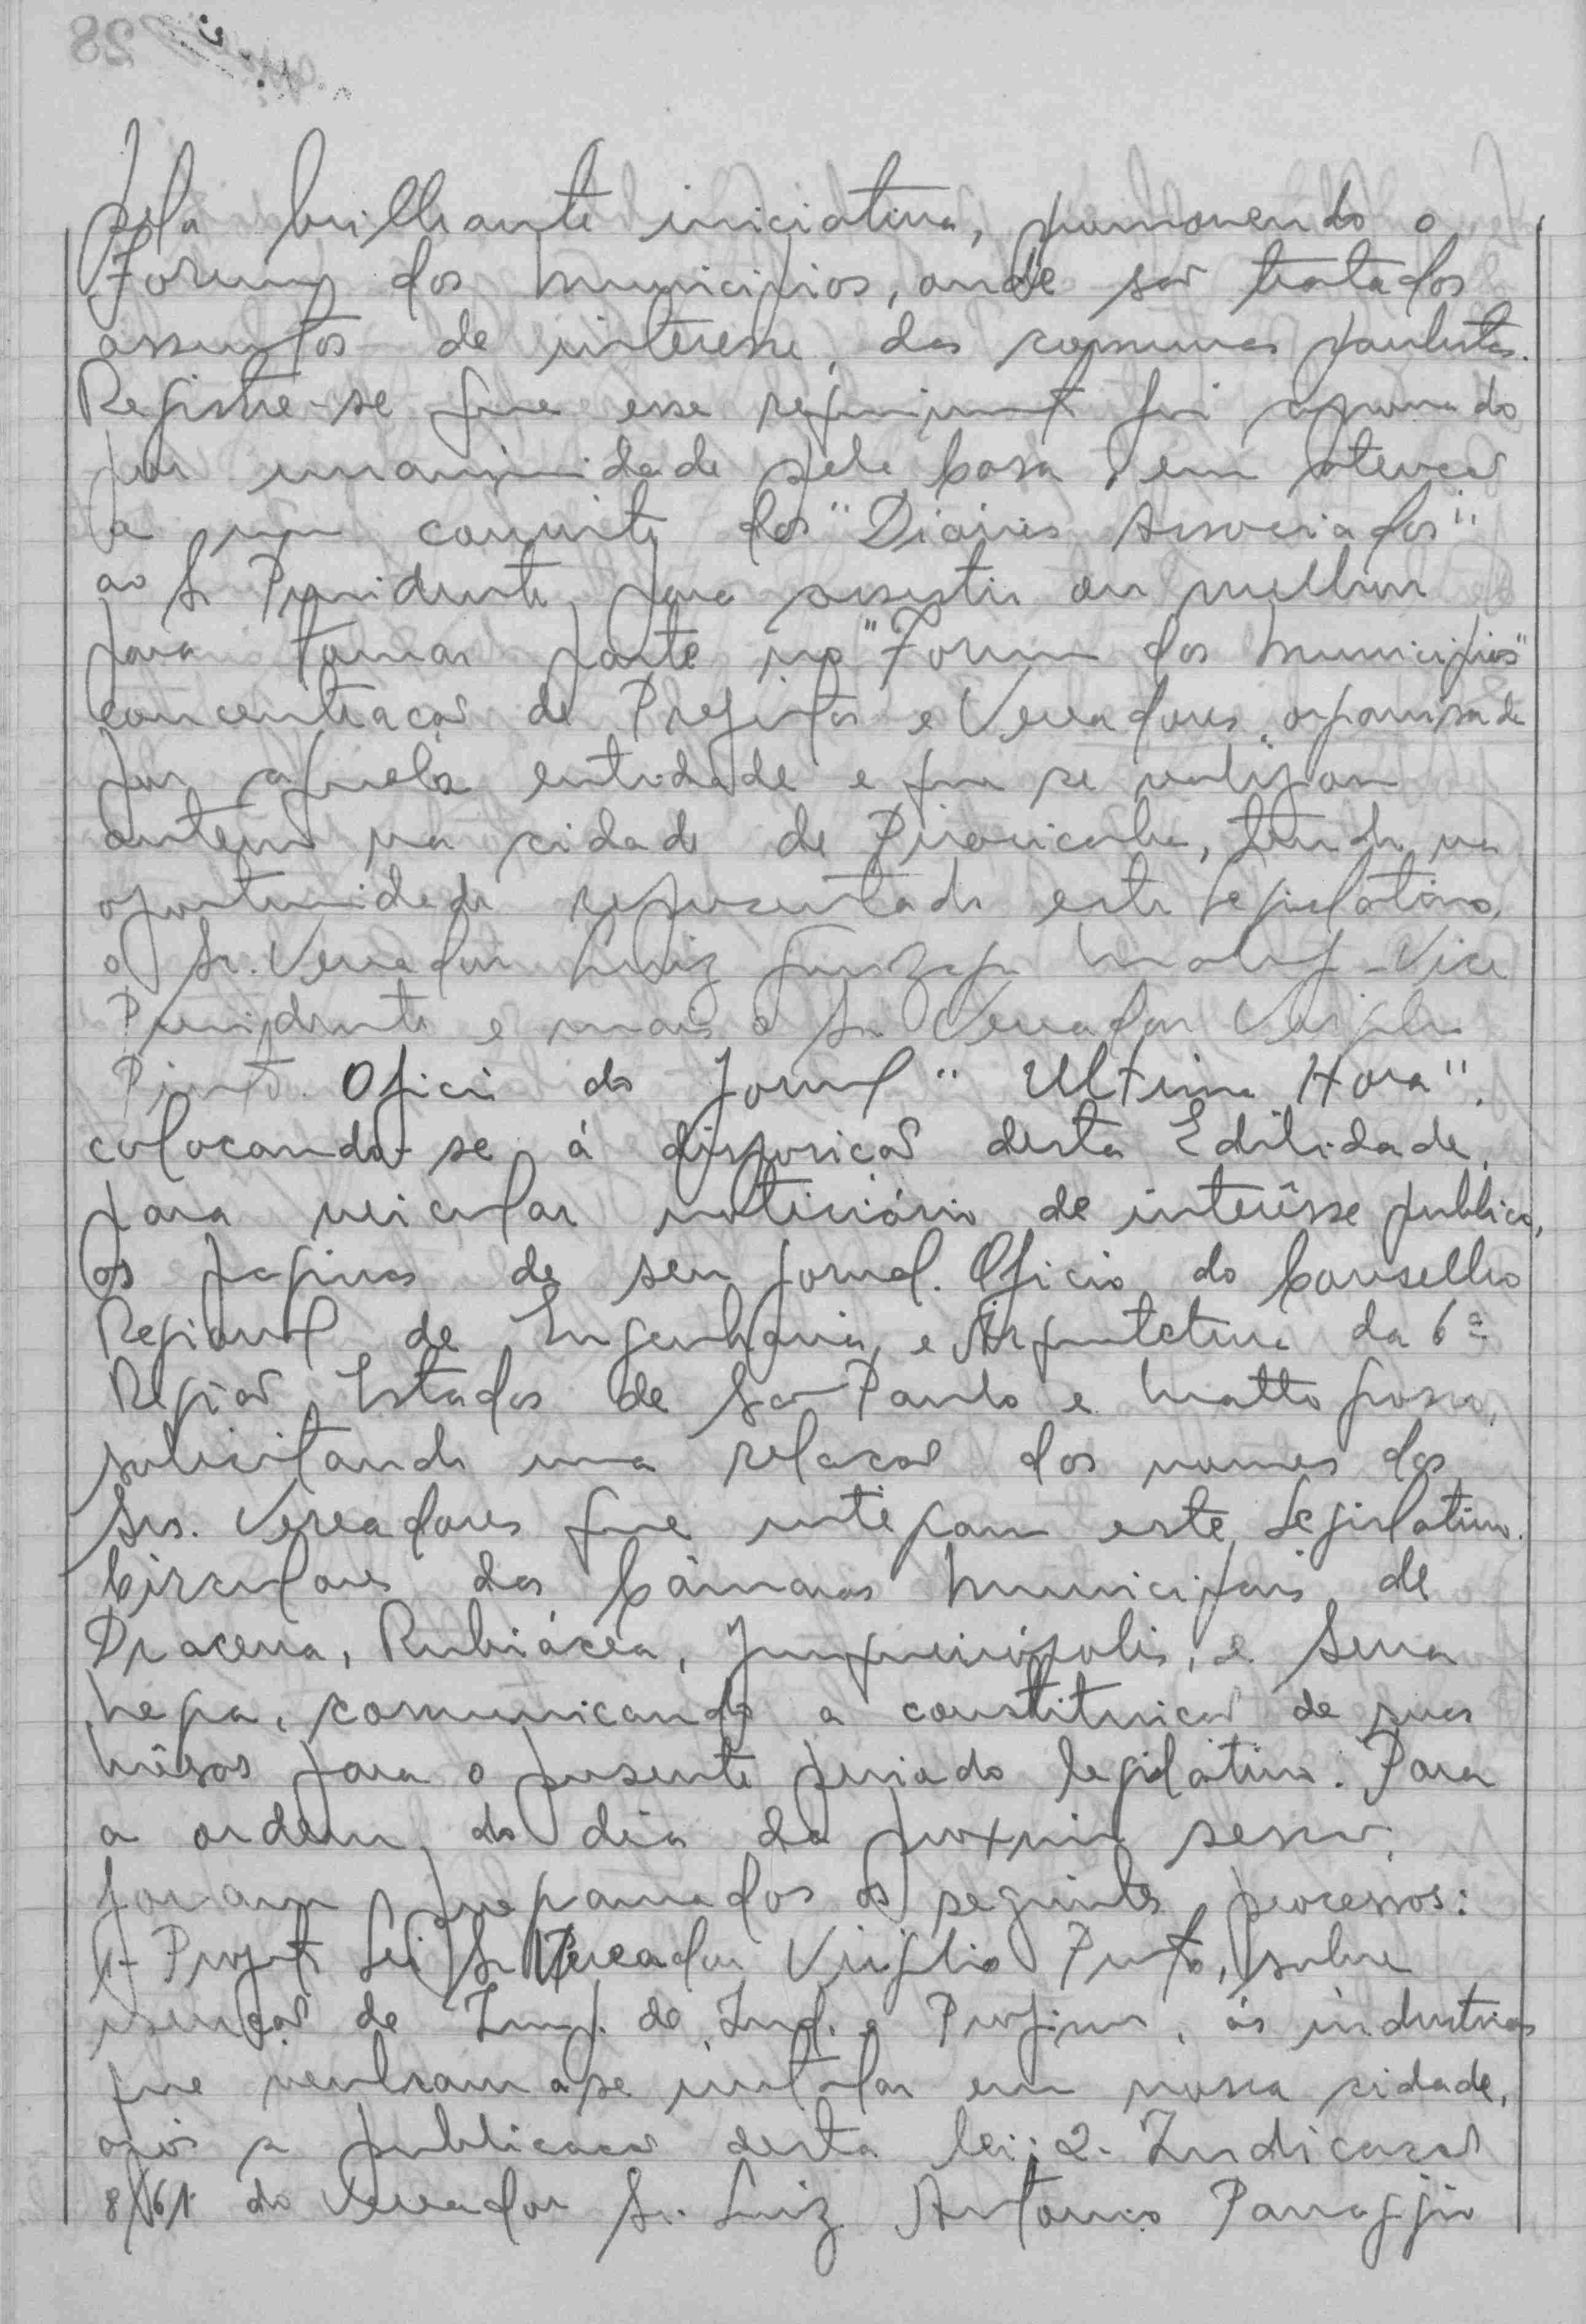 pela brilhante iniciativa, promovendo o
Forum dos Municipios, onde são tratados
assuntos de interesse, das comunas paulistas.
Registre-se que esse requerimento foi aprovado
por unanimidade pela Casa, em atenção
a um convite dos "Diários Associados"
ao Sr Presidente, para assistir ou melhor
para tomar parte no "Forum dos Municipios"
concentração de Prefeitos e Vereadores, organisada
por aquela entidade e que se realizou
ontem na cidade de Piracicaba, tendo na
oportunidade representado este Legislativo,
o Sr. Vereador Luiz Maluf - Vice
Presidente e mais o Sr. Vereador Virgilio
Pinto. Oficio do Jornal "Ultima Hora".
colocando-se á disposição desta Edilidade,
para veicular noticiário de interêsse publico,
as paginas de seu jornal. Oficio do Conselho
Regional de Engenharia, e Arquitetura da 6ª
Região Estados de São Paulo e Matto Grosso,
solicitando uma relação dos nomes dos
Srs. Vereadores que integram este Legislativo.
Circulares das Câmaras Municipais de
Dracena, Rubiácea, Junqueirópolis, e Serra
Negra, comunicando a constituição de suas
Mêsas para o presente periodo legislativo. Para
a ordem do dia da proxima sessão,
foram preparados os seguintes processos:
1- Projeto Lei Sr Vereador Virgilio Pinto, sobre
isenção de Imp. de Ind. e Profissões, ás industrias
que venham a se instalar em nossa cidade,
após a publicação desta lei; 2- Indicação
8/61 do Vereador Sr. Luiz Antonio Panaggio